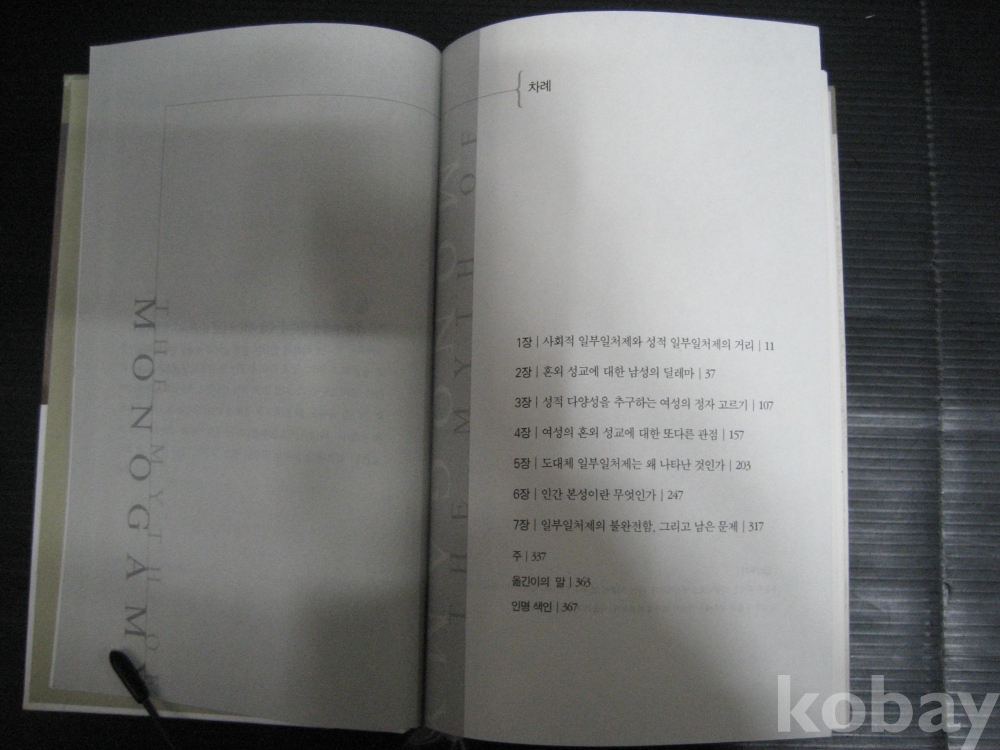 THE MYTH OF
MONOGAMY
THE MYTH OF
차례
1장 | 사회적 일부일처제와 성적 일부일처제의 거리 | 11
2장 | 혼외 성교에 대한 남성의 딜레마 | 37
3장 | 성적 다양성을 추구하는 여성의 정자 고르기 | 107
4장 | 여성의 혼외 성교에 대한 또다른 관점 | 157
5장 | 도대체 일부일처제는 왜 나타난 것인가 | 203
6장 | 인간 본성이란 무엇인가 | 247
7장 | 일부일처제의 불완전함, 그리고 남은 문제 | 317
주 | 337
옮긴이의 말 | 363
인명 색인 | 367
kobay